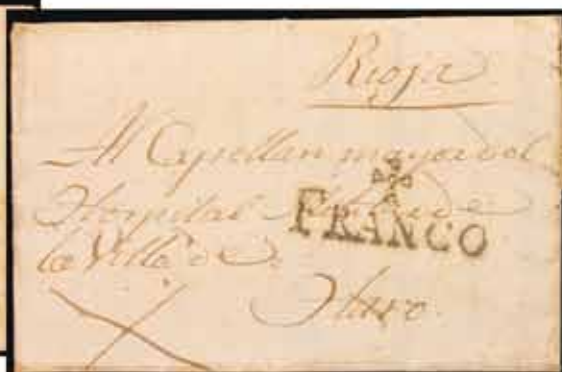 Rioja
Al Capellan mayor del
Hospital de
la Villa de
Haro.
FRANCO